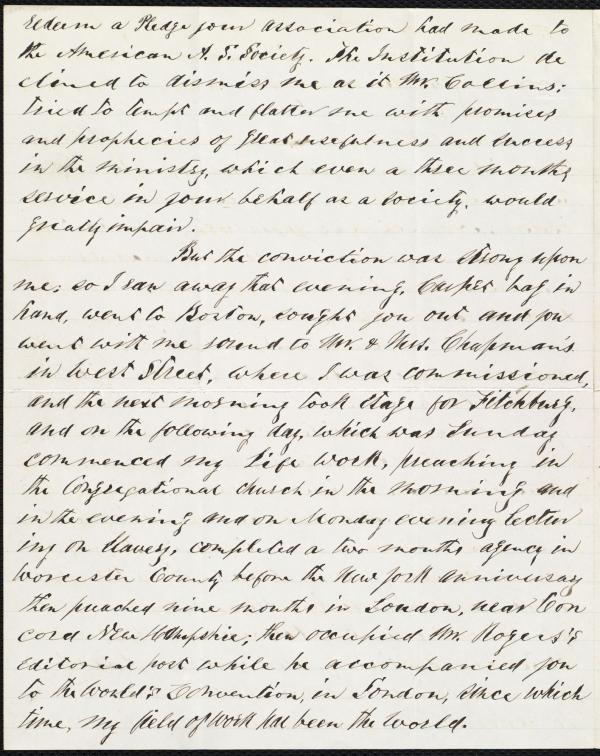 redeem a Pledge your association had made to
the American A. S. Society. The Institution de
clined to dismiss me as it Mr. Collins:
tried to tempt and flatter me with promises
and prophecies of great usefulness and success
in the ministry, which even a three months
service in your behalf as a society, would
greatly impair.
But the conviction was strong upon
me; so I ran away that evening, Carpet bag in
hand, went to Boston, sought you out and you
went with me round to Mr. & Mrs. Chapman's
in West Street, where I was commissioned,
and the next morning took stage for Fitchburg,
and on the following day, which was Sunday
commenced my Life work, preaching in
the Congregational church in the morning and
in the evening and on Monday evening lectur
ing on Slavery, completed a two months agency in
Worcester County before the New York anniversary
then preached nine months in London, near Con
cord New Hampshire; then occupied Mr. Rogers's
editorial post while he accompanied you
to the World's Convention, in London, since which
time, my field of work had been the World.